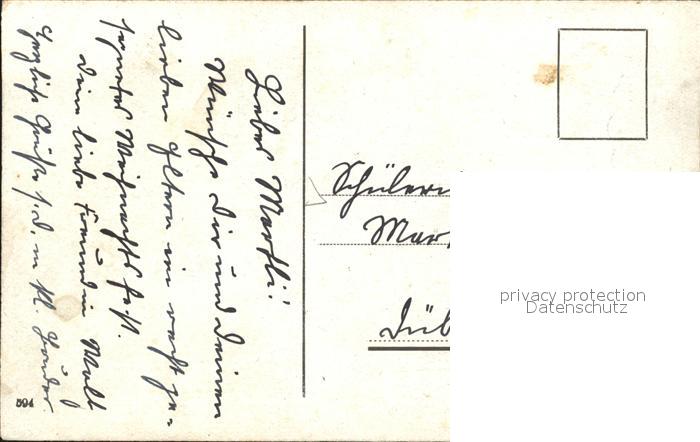 Liebes Martli!
Wünsche Dir und Deinen
lieben Eltern ein recht ge-
segnetes Weihnachtsfest.
Deine liebe Freundin
Herzliche Grüße
Schülerin
Mar
Düb
privacy protection
Datenschutz
594